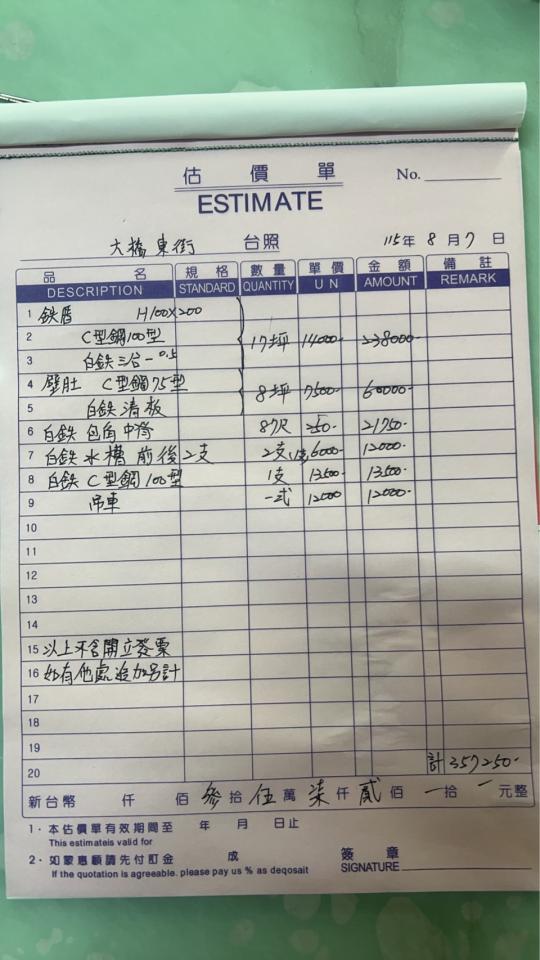 估價單 No.
ESTIMATE
大橋東街 台照 115年8月7日
品名 規格 數量 單價 金額 備註
DESCRIPTION STANDARD QUANTITY U N AMOUNT REMARK
1 鉄厝 H100X200
2 C型鋼100型 17坪 14000- 238000-
3 白鉄三合一0.5
4 壁肚 C型鋼75型 8坪 7500- 60000-
5 白鉄清板
6 白鉄包角中脊 87尺 250- 21750-
7 白鉄水槽前後2支 2支 1支6000- 12000-
8 白鉄C型鋼100型 1支 13500- 13500-
9 吊車 一式 12000 12000-
10
11
12
13
14
15 以上不含開立發票
16 如有他處追加另計
17
18
19
20 計357250-
新台幣 仟 佰 參拾伍萬柒仟貳佰 拾 元整
1．本估價單有效期間至 年 月 日止
This estimateis valid for
2．如蒙惠顧請先付訂金 成 簽章
If the quotation is agreeable. please pay us % as deqosait SIGNATURE